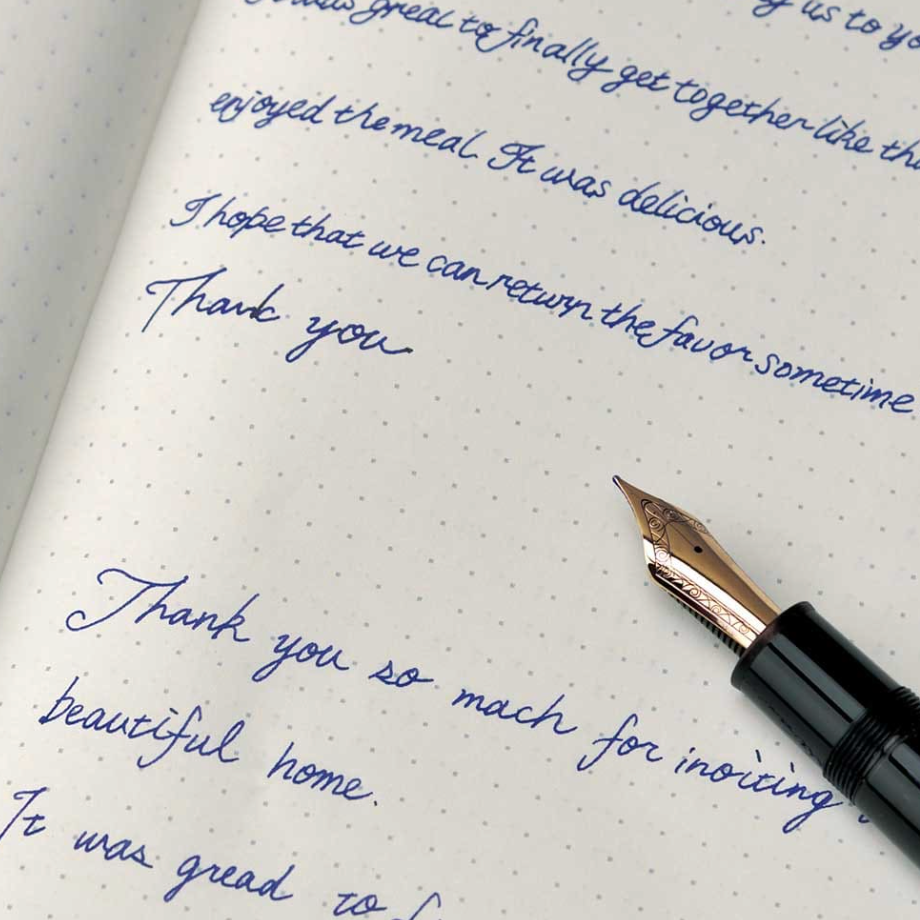 us to
great to finally get together like
enjoyed the meal. It was delicious.
I hope that we can return the favor sometime
Thank you
Thank you so mach for inoiting
beautiful home.
It was gread to